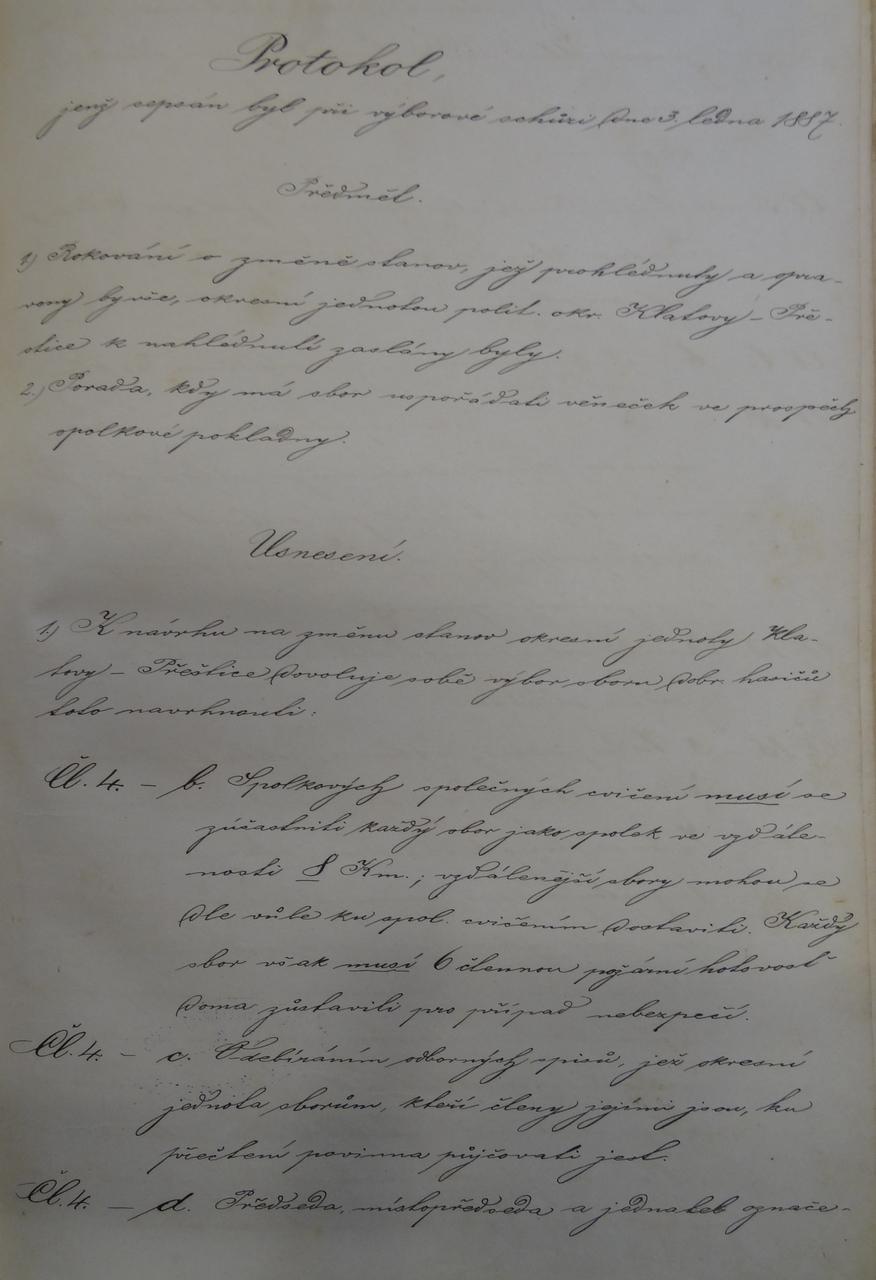 Protokol,
jenž sepsán byl při výborové schůzi dne 3. ledna 1887.
Předmět.
1) Rokování o změně stanov, jež prohlédnuty a opra-
veny byvše, okresní jednotou polit. okr. Klatovy – Pře-
štice k nahlédnutí zaslány byly.
2.) Porada, kdy má sbor uspořádati věneček ve prospěch
spolkové pokladny.
Usnesení.
1.) K návrhu na změnu stanov okresní jednoty Kla-
tovy – Přeštice dovoluje sobě výbor sboru dobr. hasičů
toto navrhnouti:
Čl. 4. – b. Spolkových společných cvičení musí se
zúčastniti každý sbor jako spolek ve vzdále-
nosti 8 Km.; vzdálenější sbory mohou se
dle vůle ku spol. cvičením dostaviti. Každý
sbor však musí 6 člennou požární hotovost
doma zůstaviti pro případ nebezpečí.
Čl. 4. – c. Odebíráním odborných spisů, jež okresní
jednota sborům, kteří členy jejími jsou, ku
přečtení povinna půjčovati jest.
Čl. 4. – d. Předseda, místopředseda a jednatel označe-